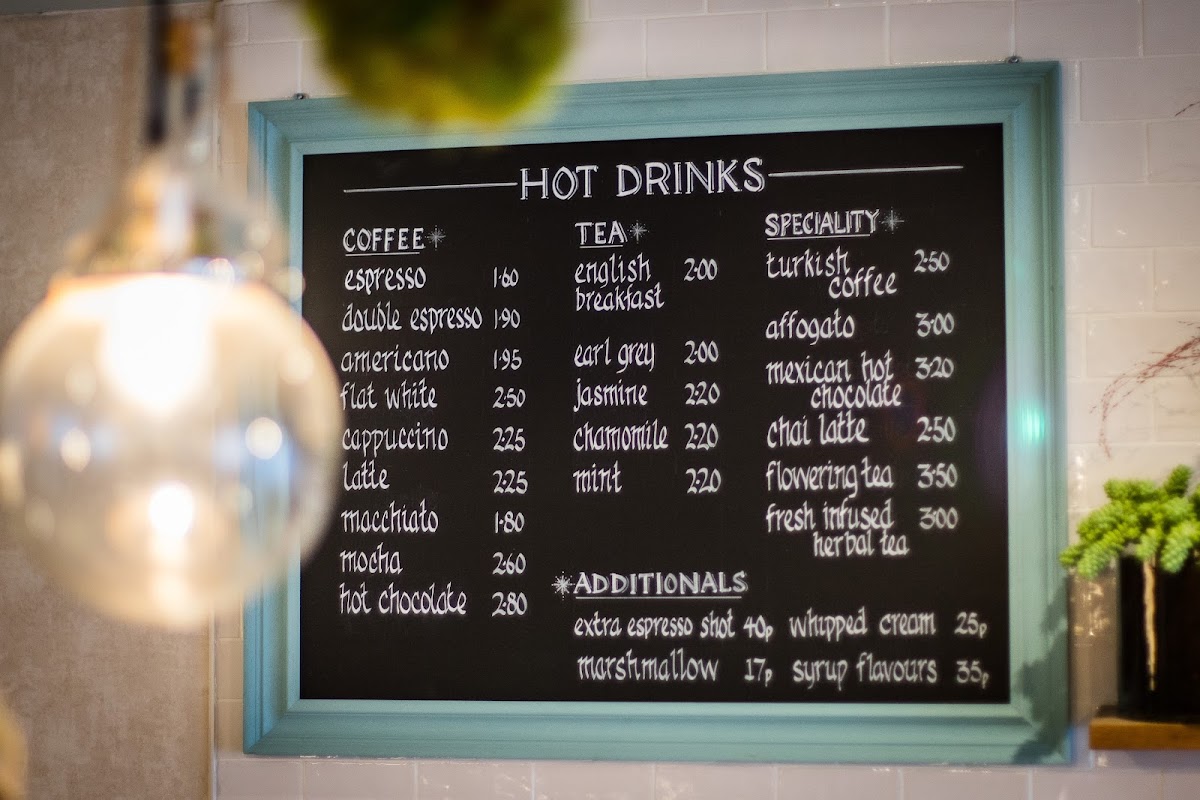 HOT DRINKS
COFFEE
espresso 1.60
double espresso 1.90
americano 1.95
flat white 2.50
cappuccino 2.25
latte 2.25
macchiato 1.80
mocha 2.60
hot chocolate 2.80
TEA
english 2.00
breakfast
earl grey 2.00
jasmine 2.20
chamomile 2.20
mint 2.20
SPECIALITY
turkish 2.50
coffee
affogato 3.00
mexican hot 3.20
chocolate
chai latte 2.50
flowering tea 3.50
fresh infused 3.00
herbal tea
ADDITIONALS
extra espresso shot 40p whipped cream 25p
marshmallow 17p syrup flavours 35p